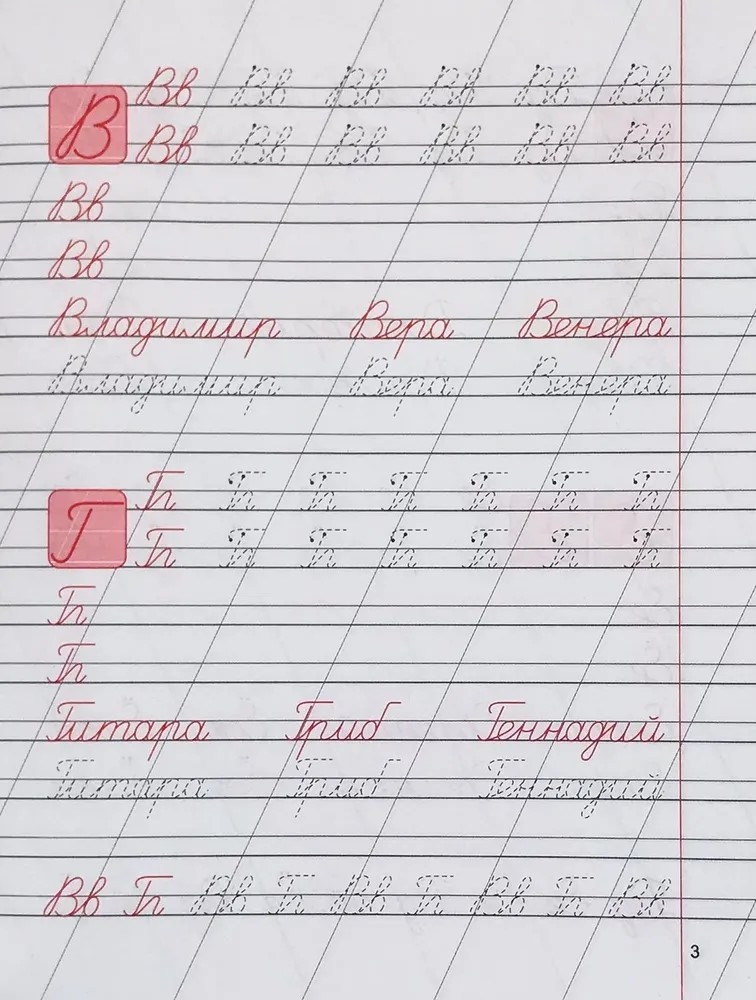 В Вв Вв Вв Вв Вв Вв
Вв Вв Вв Вв Вв Вв
Вв
Вв
Владимир Вера Венера
Владимир Вера Венера
Г Гг Гг Гг Гг Гг Гг Гг
Гг Гг Гг Гг Гг Гг Гг
Гг
Гг
Гитара Гриб Геннадий
Гитара Гриб Геннадий
Вв Гг Вв Гг Вв Гг Вв Гг Вв
3